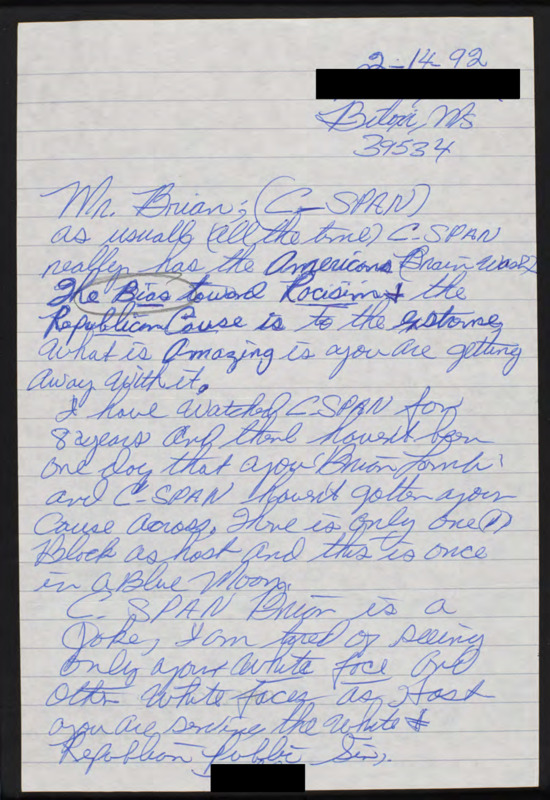 2-14-92
Biloxi, Ms
39534
Mr. Brian; (C-SPAN)
as usually (all the time) C-SPAN
really has the Americans Brain Wash
The Bias toward Racisim & the
Republican Cause is to the extorme
What is Amazing is you are getting
Away with it.
I have watched C-SPAN for
8 years and there haven't been
one day that you 'Brian Lamb'
and C-SPAN haven't gotten your
Cause Across. There is only one (1)
Black as host and this is once
in a Blue Moon.
C-SPAN Brian is a
Joke, I am tired of seeing
only your White face and
Other White faces as Host
you are serving the White &
Republican public Sir,.